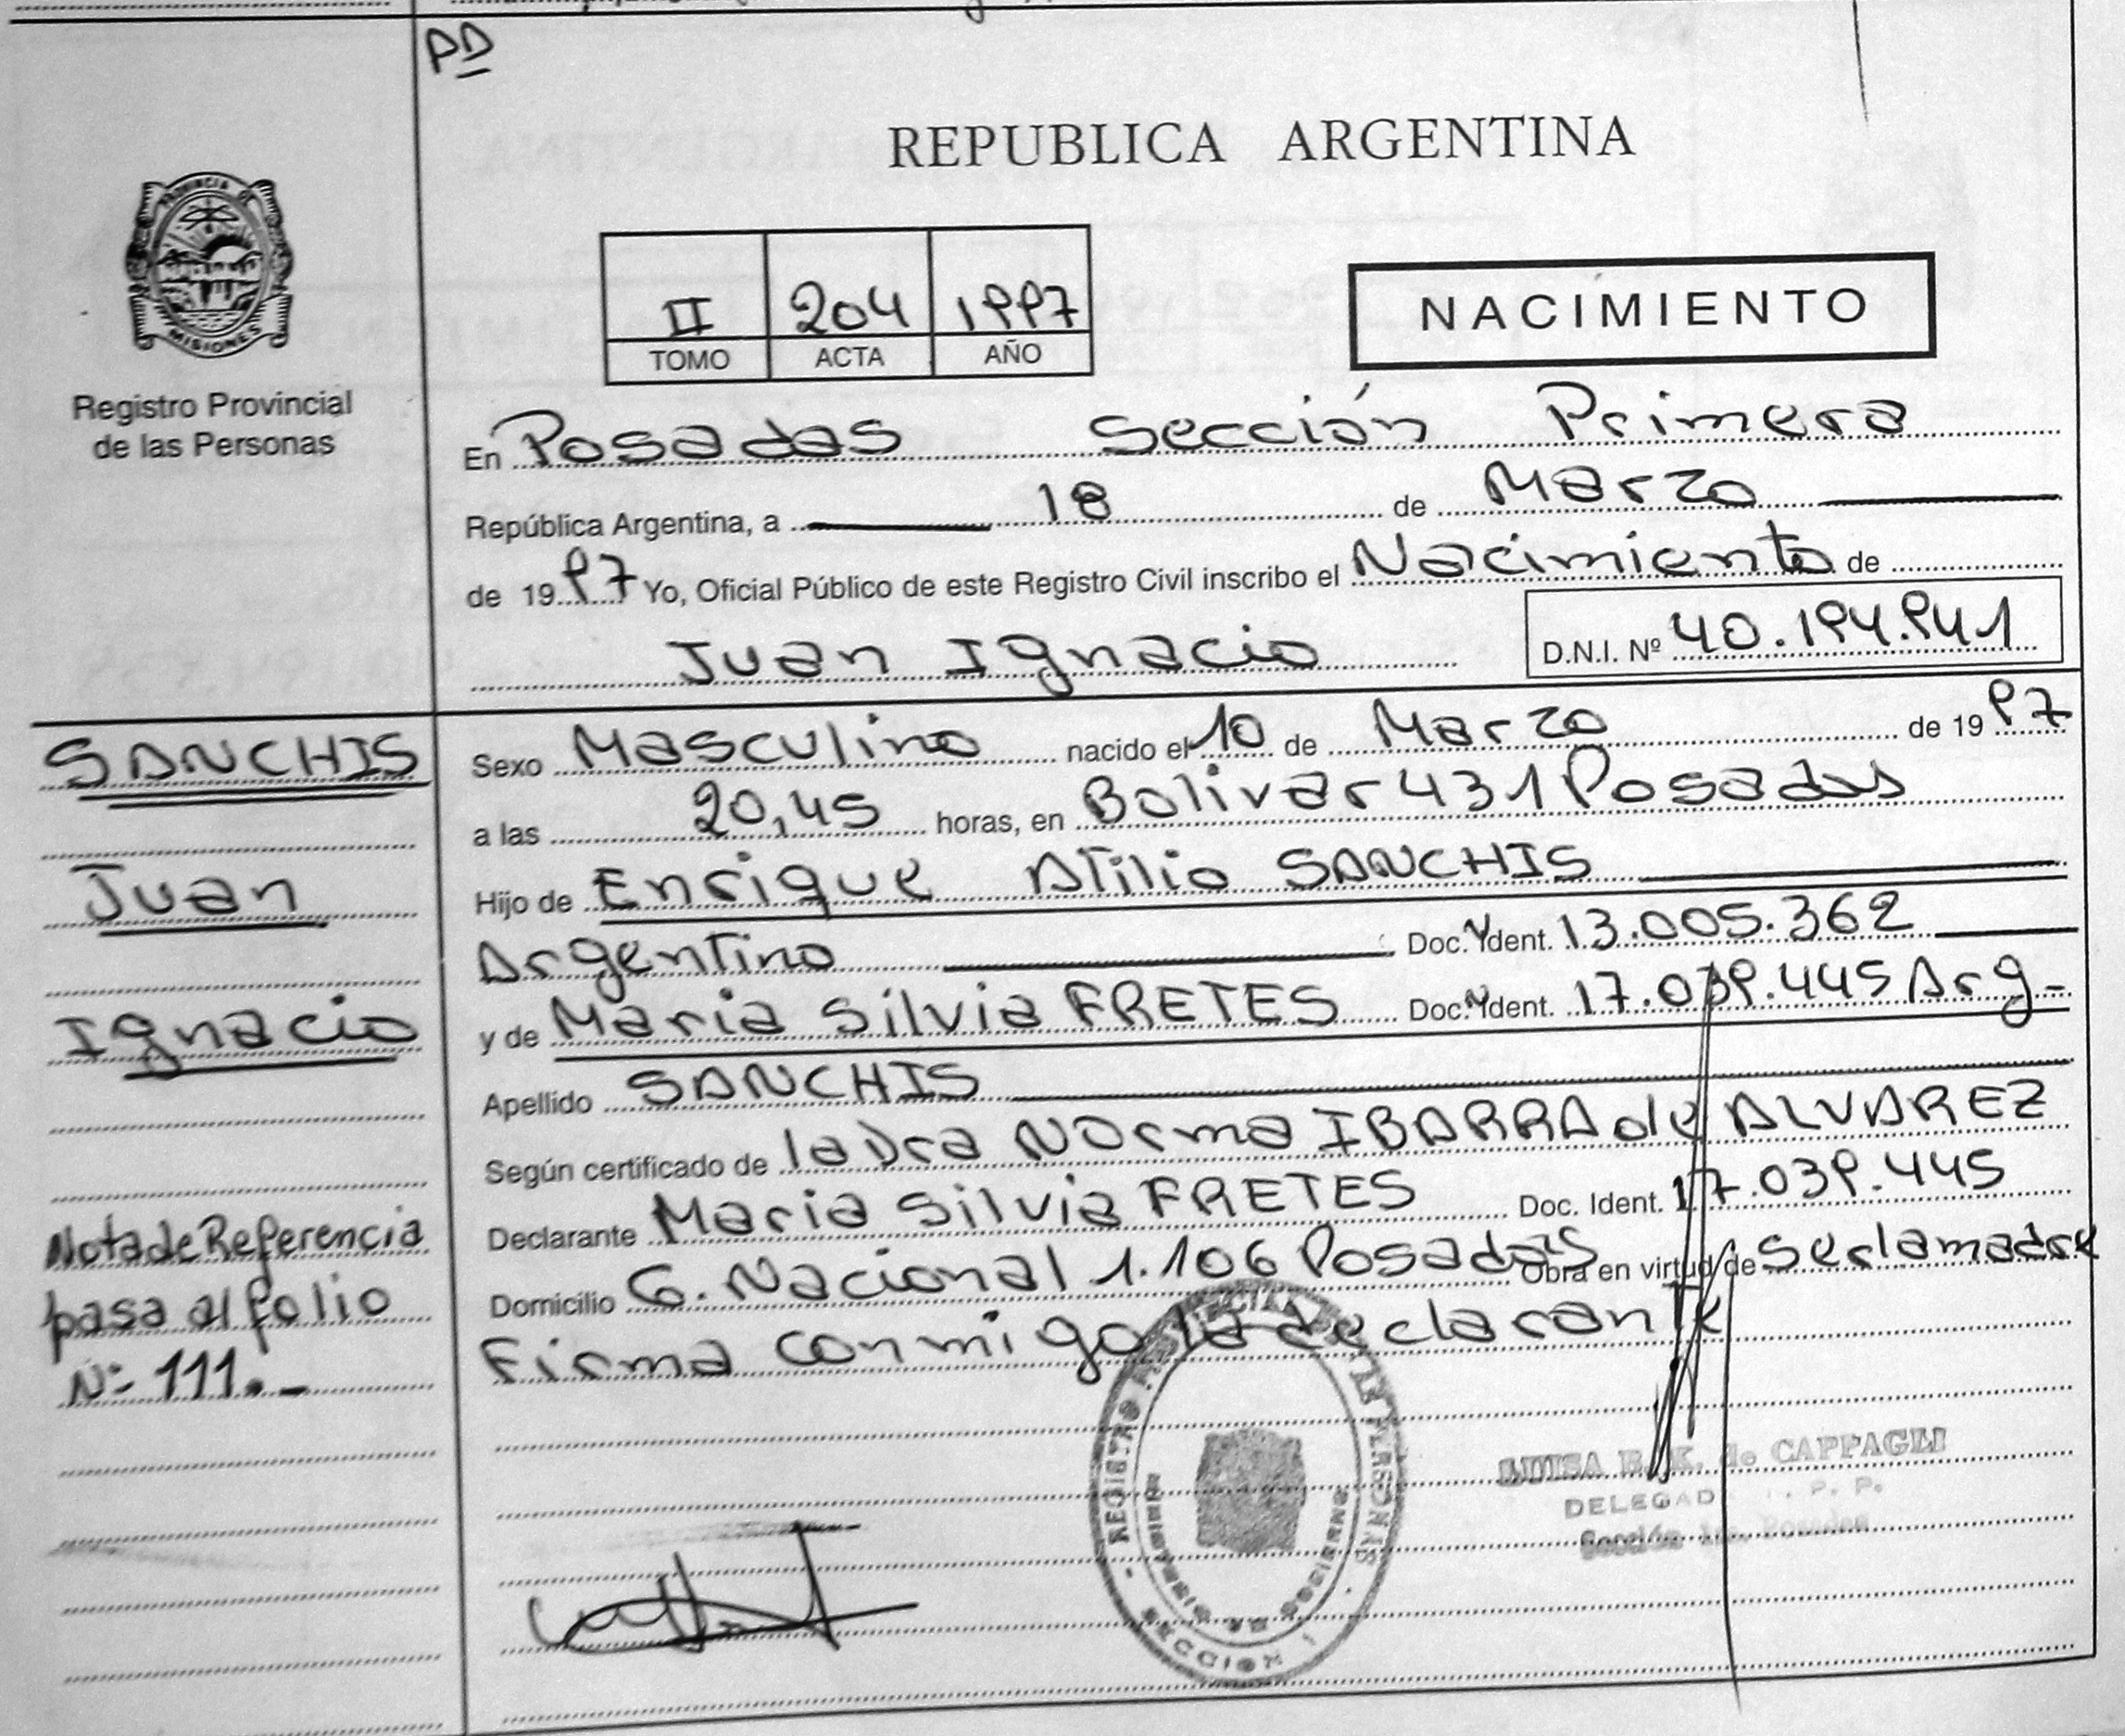 PD
REPUBLICA ARGENTINA
PROVINCIA DE
MISIONES
Registro Provincial
de las Personas
II 204 1997
TOMO ACTA AÑO
NACIMIENTO
En Posadas Sección Primera
República Argentina, a 18 de Marzo
de 1997 Yo, Oficial Público de este Registro Civil inscribo el Nacimiento de
Juan Ignacio
D.N.I. Nº 40.194.941
SANCHIS
Juan
Ignacio
Nota de Referencia
pasa al folio
Nº 111.-
Sexo Masculino nacido el 10 de Marzo de 1997
a las 20,45 horas, en Bolivar 431 Posadas
Hijo de Enrique Atilio SANCHIS
Argentino Doc. Ident. 13.005.362
y de Maria Silvia FRETES Doc. Ident. 17.039.445 Arg-
Apellido SANCHIS
Según certificado de la Dra Norma IBARRA de ALVAREZ
Declarante Maria Silvia FRETES Doc. Ident. 17.039.445
Domicilio C. Nacional 1.106 Posadas Obra en virtud de ser la madre
Firma conmigo la declarante
REGISTRO PROVINCIAL DE LAS PERSONAS
MINISTERIO DE GOBIERNO
SECCION 1
LUISA E. K. de CAPPAGLI
DELEGAD . P. P.
Sección 1ra. Posadas